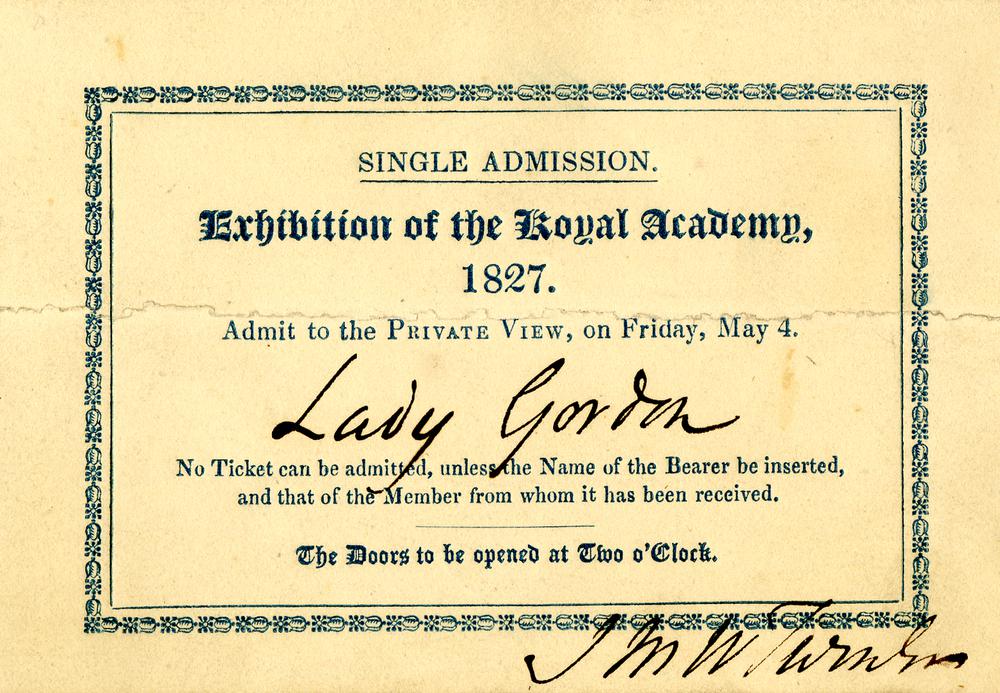 SINGLE ADMISSION.
Exhibition of the Royal Academy,
1827.
Admit to the PRIVATE VIEW, on Friday, May 4.
Lady Gordon
No Ticket can be admitted, unless the Name of the Bearer be inserted,
and that of the Member from whom it has been received.
The Doors to be opened at Two o'Clock.
J M W Turner